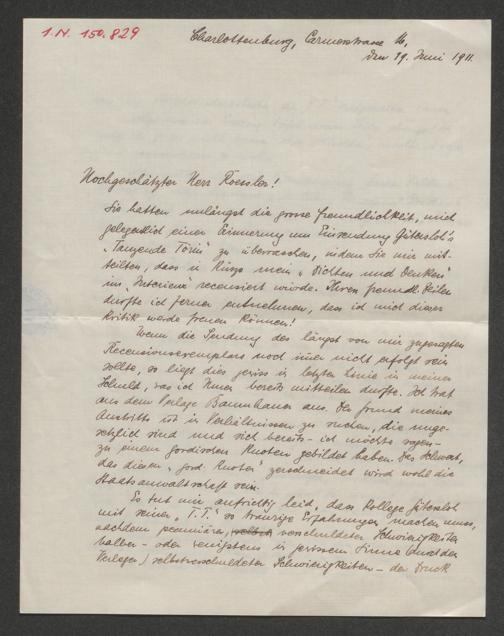 I.N. 150.829
Charlottenburg, Carmerstrasse 16,
den 19. Juni 1911.
Hochgeschätzter Herr Roessler!
Sie hatten unlängst die grosse Freundlichkeit, mich
gelegentlich einer Erinnerung um Einsendung Gütersloh's
"Tanzende Törin" zu überraschen, indem Sie mir mit-
teilten, dass in Kürze mein "Dichten und Denken"
im "Interieur" recensiert würde. Ihren freundl. Zeilen
durfte ich ferner entnehmen, dass ich mich dieser
Kritik werde freuen können!
Wenn die Sendung des längst von mir zugesagten
Recensionsexemplars noch immer nicht erfolgt sein
sollte, so liegt dies gewiss in letzter Linie in meiner
Schuld, was ich Ihnen bereits mitteilen durfte. Ich trat
aus dem Verlage Baumhauer aus. Der Grund meines
Austritts ist in Verhältnissen zu suchen, die unge-
setzlich sind und sich bereits - ich möchte sagen -
zu einem gordischen Knoten gebildet haben. Das Schwert,
das diesen "gord. Knoten" zerschneidet wird wohl die
Staatsanwaltschaft sein.
Es tut mir aufrichtig leid, dass Kollege Gütersloh
mit seiner "T.T." so traurige Erfahrungen machen muss,
nachdem pecuniäre, selbst verschuldeter Schwierigkeiten
halber - oder wenigstens in gewissem Sinne (durch den
Verleger) selbstverschuldeter Schwierigkeiten - der Druck